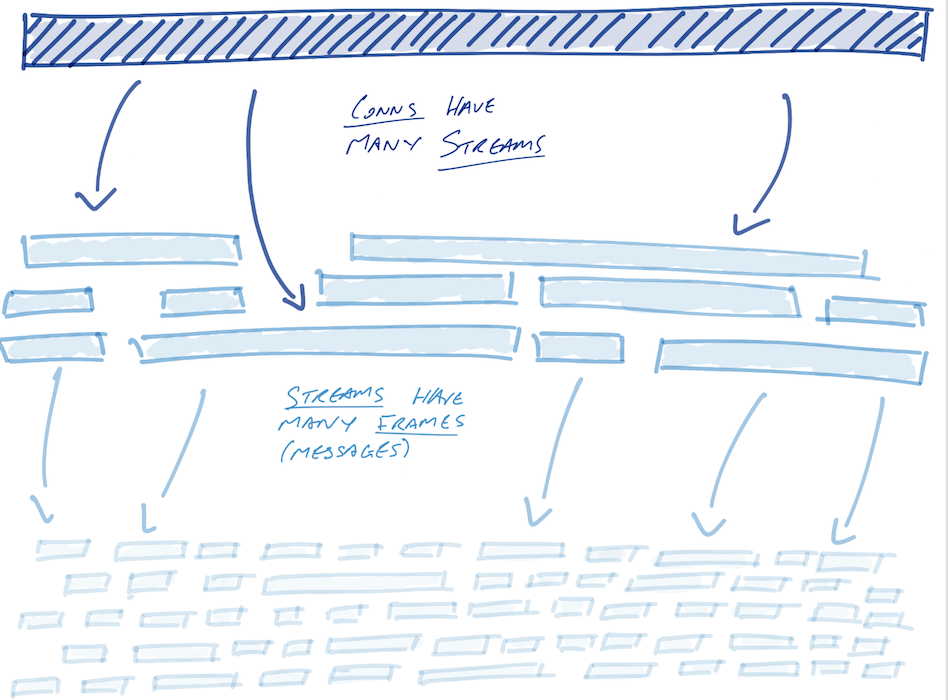 CONNS HAVE
MANY STREAMS
STREAMS HAVE
MANY FRAMES
(MESSAGES)